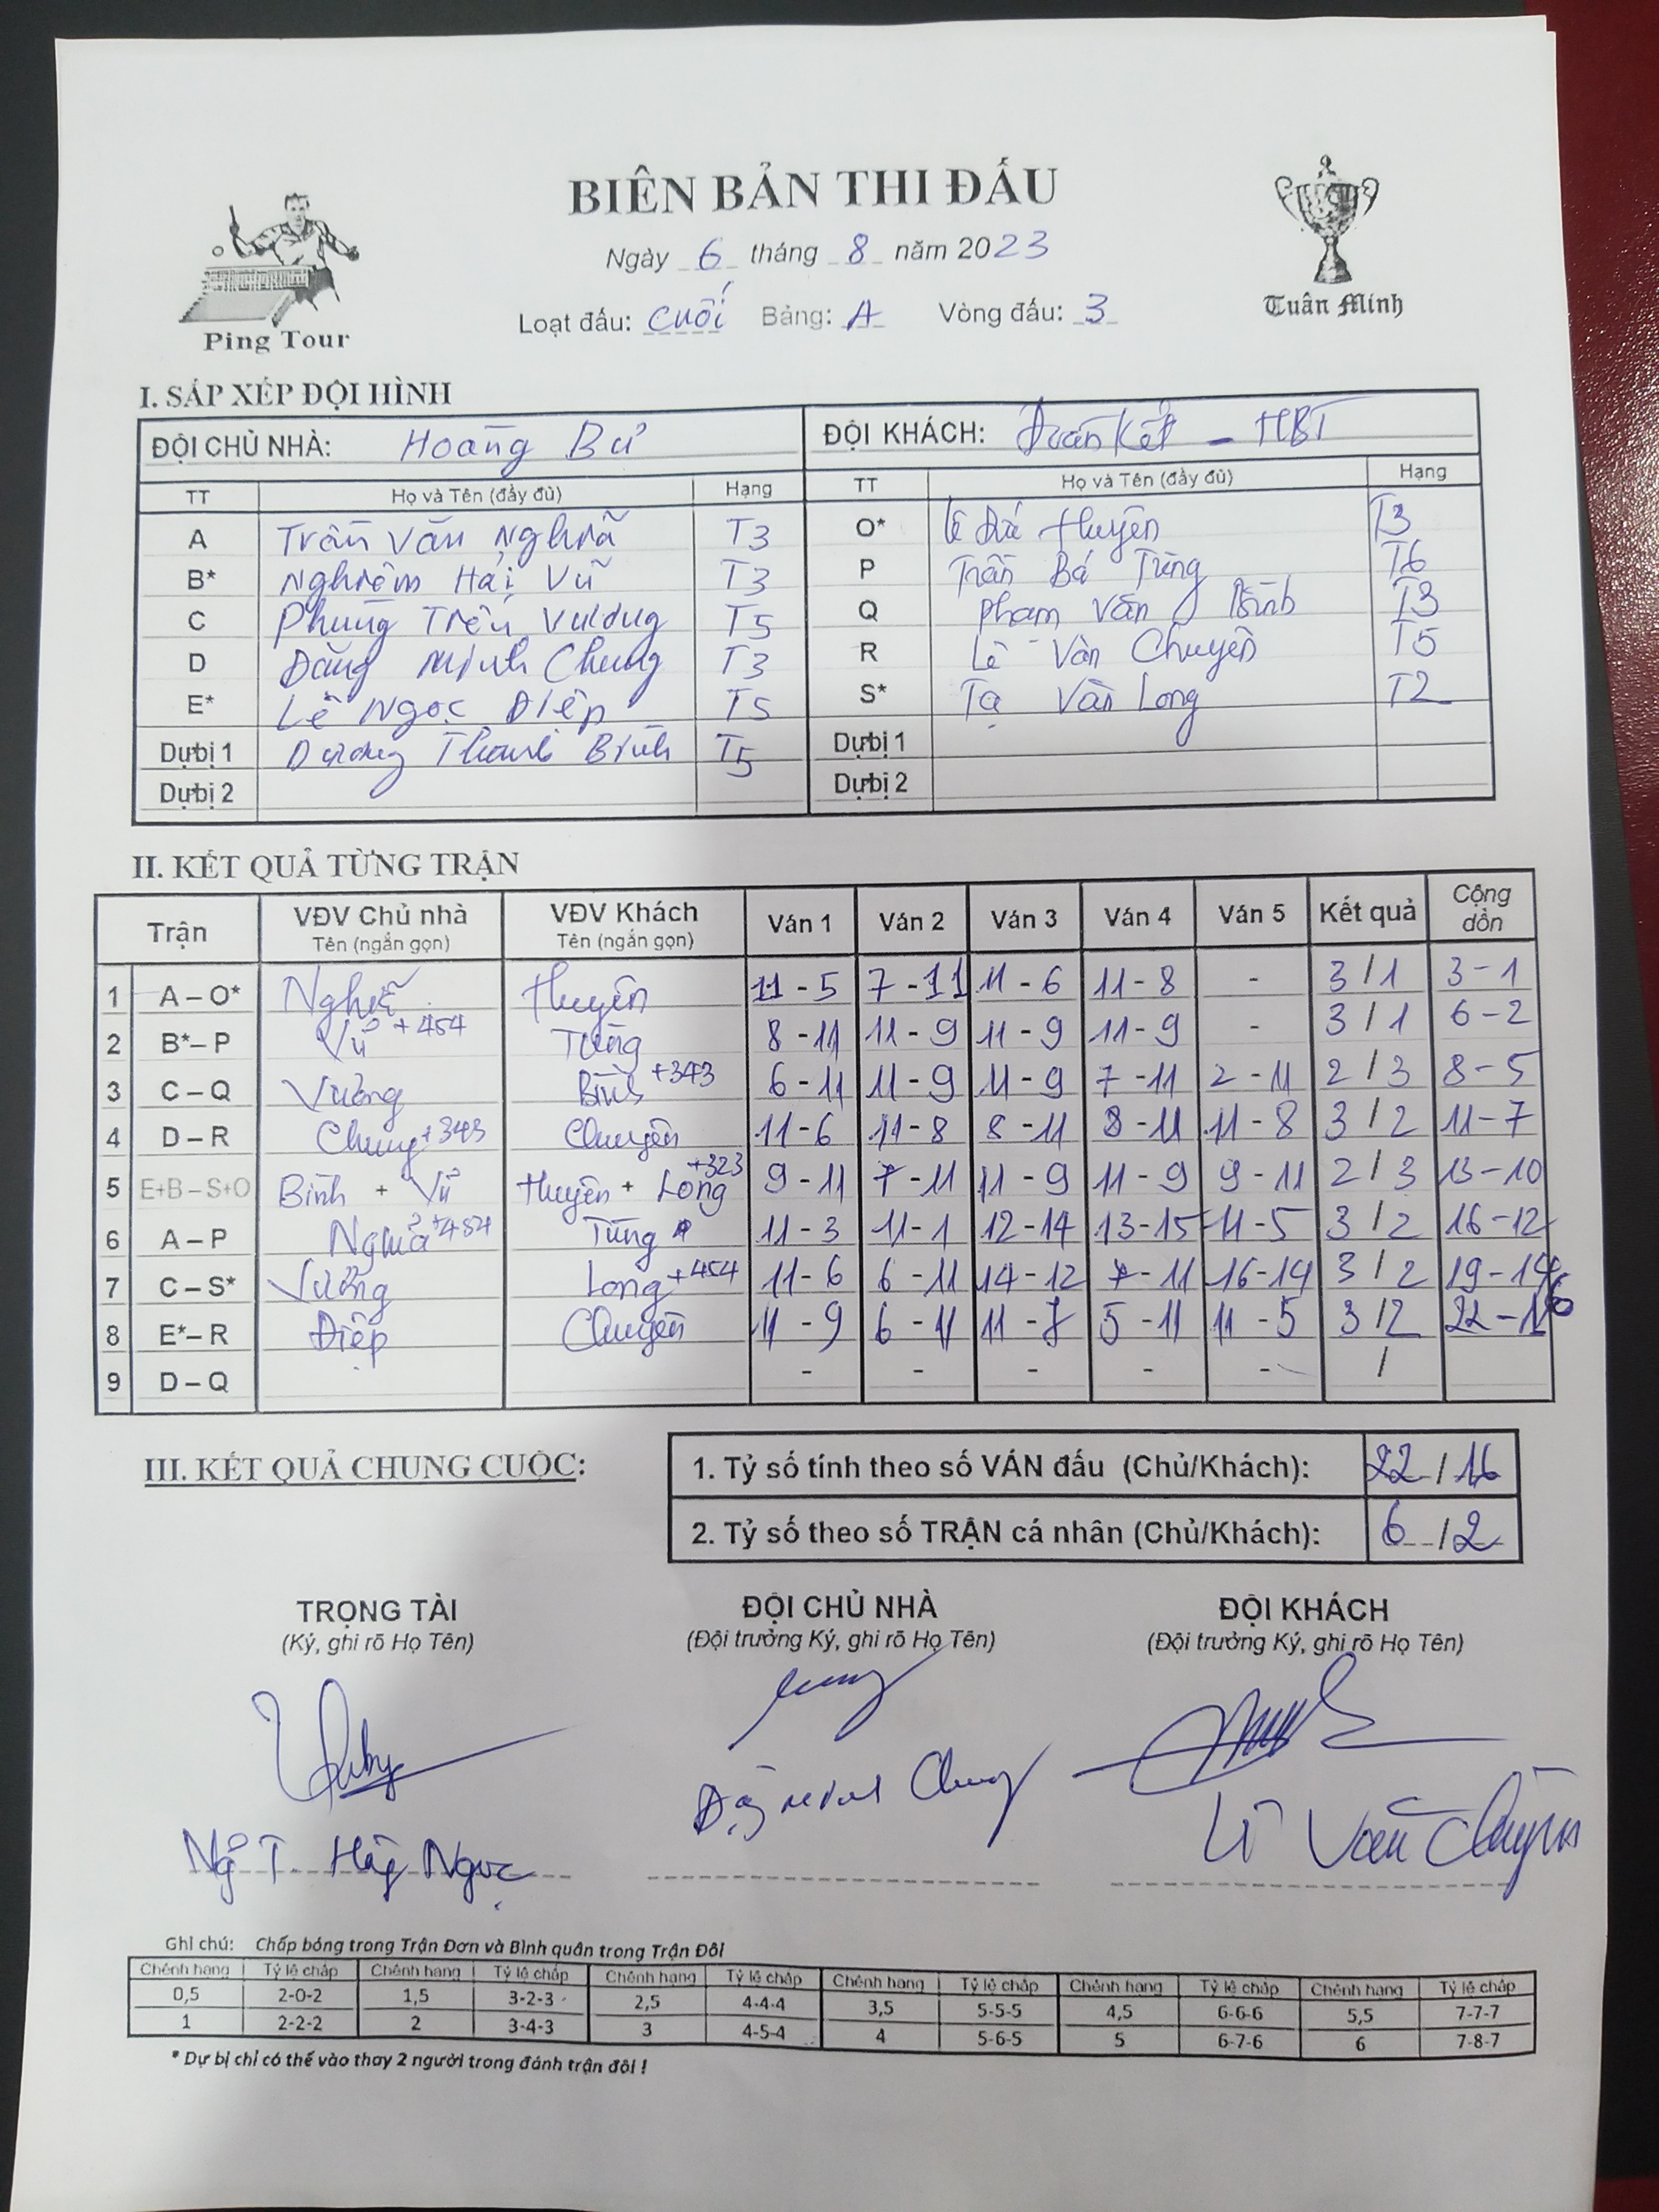 BIÊN BẢN THI ĐẤU
Ngày 6 tháng 8 năm 2023
Loạt đấu: cuối Bảng: A Vòng đấu: 3
Ping Tour
Tuấn Minh
I. SẮP XẾP ĐỘI HÌNH
ĐỘI CHỦ NHÀ: Hoàng Bư ĐỘI KHÁCH: Đoàn Kết - HBT
TT Họ và Tên (đầy đủ) Hạng TT Họ và Tên (đầy đủ) Hạng
A Trần Văn Nghĩa T3 O* Lê Huyên T3
B* Nghiêm Hải Vũ T3 P Trần Bá Tùng T6
C Phùng Vương T5 Q Phạm Văn Bình T3
D Đặng Minh Chung T3 R Lê Văn Chuyên T5
E* Lê Ngọc Điệp T5 S* Tạ Văn Long T2
Dự bị 1 Dương Thanh Bình T5 Dự bị 1
Dự bị 2 Dự bị 2
II. KẾT QUẢ TỪNG TRẬN
Trận VĐV Chủ nhà Tên (ngắn gọn) VĐV Khách Tên (ngắn gọn) Ván 1 Ván 2 Ván 3 Ván 4 Ván 5 Kết quả Cộng dồn
1 A – O* Nghĩa Huyên 11 - 5 7 - 11 11 - 6 11 - 8 - 3 / 1 3 - 1
2 B* – P Vũ +454 Tùng 8 - 11 11 - 9 11 - 9 11 - 9 - 3 / 1 6 - 2
3 C – Q Vương Bình +343 6 - 11 11 - 9 11 - 9 7 - 11 2 - 11 2 / 3 8 - 5
4 D – R Chung +343 Chuyên 11 - 6 11 - 8 8 - 11 8 - 11 11 - 8 3 / 2 11 - 7
5 E+B – S+O Bình + Vũ Huyên + Long +323 9 - 11 7 - 11 11 - 9 11 - 9 9 - 11 2 / 3 13 - 10
6 A – P Nghĩa +454 Tùng 11 - 3 11 - 1 12 - 14 13 - 15 11 - 5 3 / 2 16 - 12
7 C – S* Vương Long +454 11 - 6 6 - 11 14 - 12 7 - 11 16 - 14 3 / 2 19 - 14
8 E* – R Điệp Chuyên 11 - 9 6 - 11 11 - 7 5 - 11 11 - 5 3 / 2 22 - 16
9 D – Q - - - - - /
III. KẾT QUẢ CHUNG CUỘC:
1. Tỷ số tính theo số VÁN đấu (Chủ/Khách): 22 / 16
2. Tỷ số theo số TRẬN cá nhân (Chủ/Khách): 6 / 2
TRỌNG TÀI ĐỘI CHỦ NHÀ ĐỘI KHÁCH
(Ký, ghi rõ Họ Tên) (Đội trưởng Ký, ghi rõ Họ Tên) (Đội trưởng Ký, ghi rõ Họ Tên)
Đặng Minh Chung
Ngô T. Hồng Ngọc Lê Văn Chuyên
Ghi chú: Chấp bóng trong Trận Đơn và Bình quân trong Trận Đôi
Chênh hạng Tỷ lệ chấp Chênh hạng Tỷ lệ chấp Chênh hạng Tỷ lệ chấp Chênh hạng Tỷ lệ chấp Chênh hạng Tỷ lệ chấp Chênh hạng Tỷ lệ chấp
0,5 2-0-2 1,5 3-2-3 2,5 4-4-4 3,5 5-5-5 4,5 6-6-6 5,5 7-7-7
1 2-2-2 2 3-4-3 3 4-5-4 4 5-6-5 5 6-7-6 6 7-8-7
* Dự bị chỉ có thể vào thay 2 người trong đánh trận đôi !